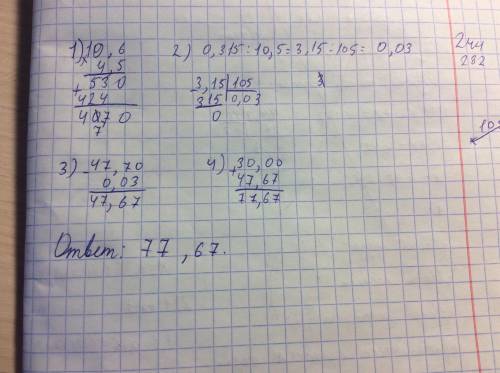 1) 10,6
× 4,5
+ 530
424
4770
2) 0,315:10,5=3,15:105= 0,03
3,15 | 105
315 | 0,03
0
3) - 47,70
0,03
47,67
4) + 30,00
47,67
77,67
Ответ: 77,67.
244
232
105